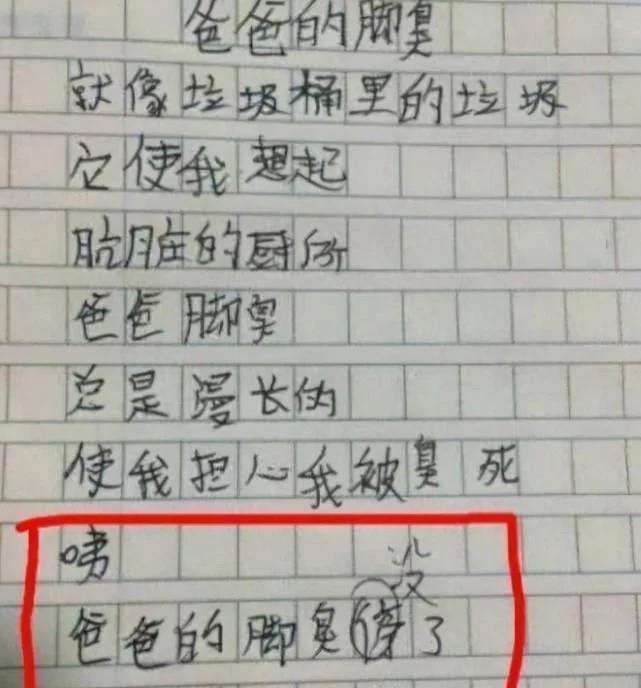 爸爸的脚臭
就像垃圾桶里的垃圾
它使我想起
肮脏的厨所
爸爸脚臭
总是漫长的
使我担心我被臭死
咦
爸爸的脚臭没了